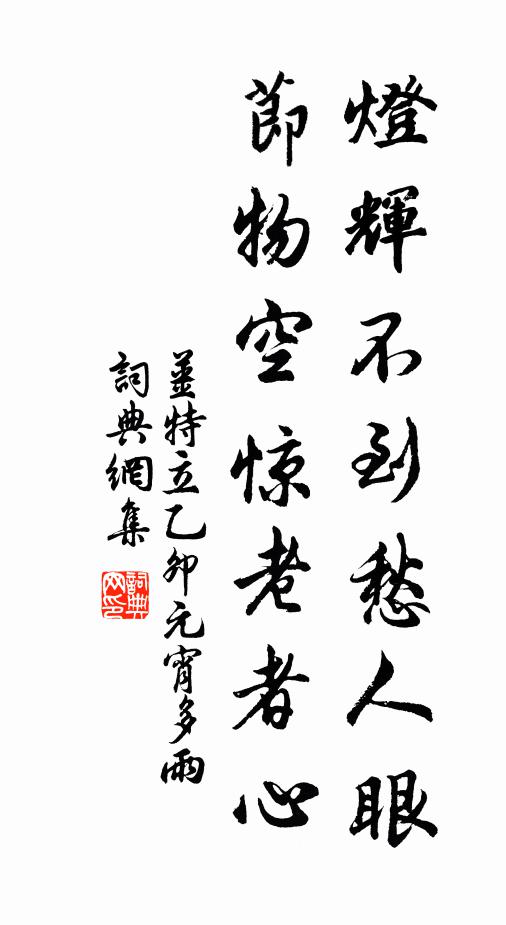 燈輝不到愁人眼
節物空惊老者心
姜特立乙卯元宵多雨
詞典網集
詞典網印